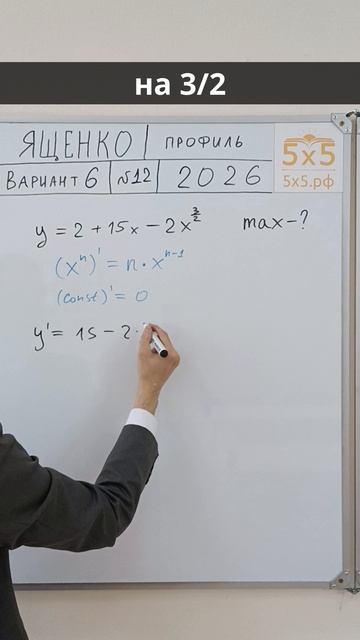 на 3/2
ЯЩЕНКО | ПРОФИЛЬ
5x5
ВАРИАНТ 6 | №12 | 2026
5x5.рф
y = 2 + 15x − 2x^(3/2) max-?
(xⁿ)' = n · xⁿ⁻¹
(const)' = 0
y' = 15 − 2 ·